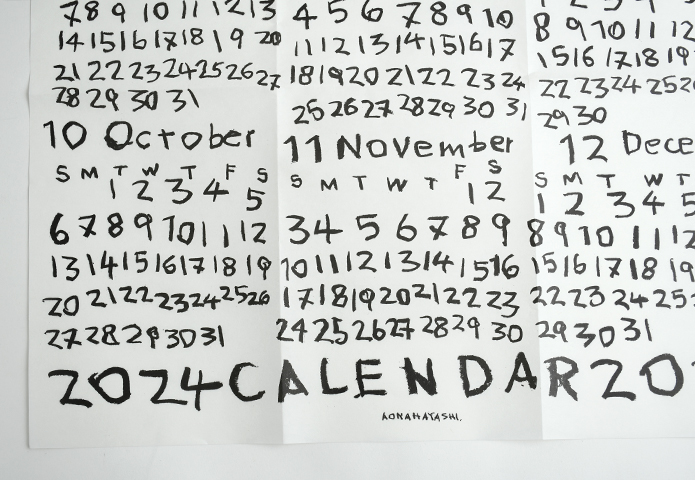 7 8 9 10 11 12 13
14 15 16 17 18 19 20
21 22 23 24 25 26 27
28 29 30 31
10 October
S M T W T F S
1 2 3 4 5
6 7 8 9 10 11 12
13 14 15 16 17 18 19
20 21 22 23 24 25 26
27 28 29 30 31
4 5 6 7 8 9 10
11 12 13 14 15 16 17
18 19 20 21 22 23 24
25 26 27 28 29 30 31
11 November
S M T W T F S
1 2
3 4 5 6 7 8 9
10 11 12 13 14 15 16
17 18 19 20 21 22 23
24 25 26 27 28 29 30
8 9 10 11 12
15 16 17 18 19
22 23 24 25 2
29 30
12 Dece
S M T W T
1 2 3 4 5
8 9 10 11 12
15 16 17 18 19
22 23 24 25
29 30 31
2024 CALENDAR 20
AONAHAYASHI.